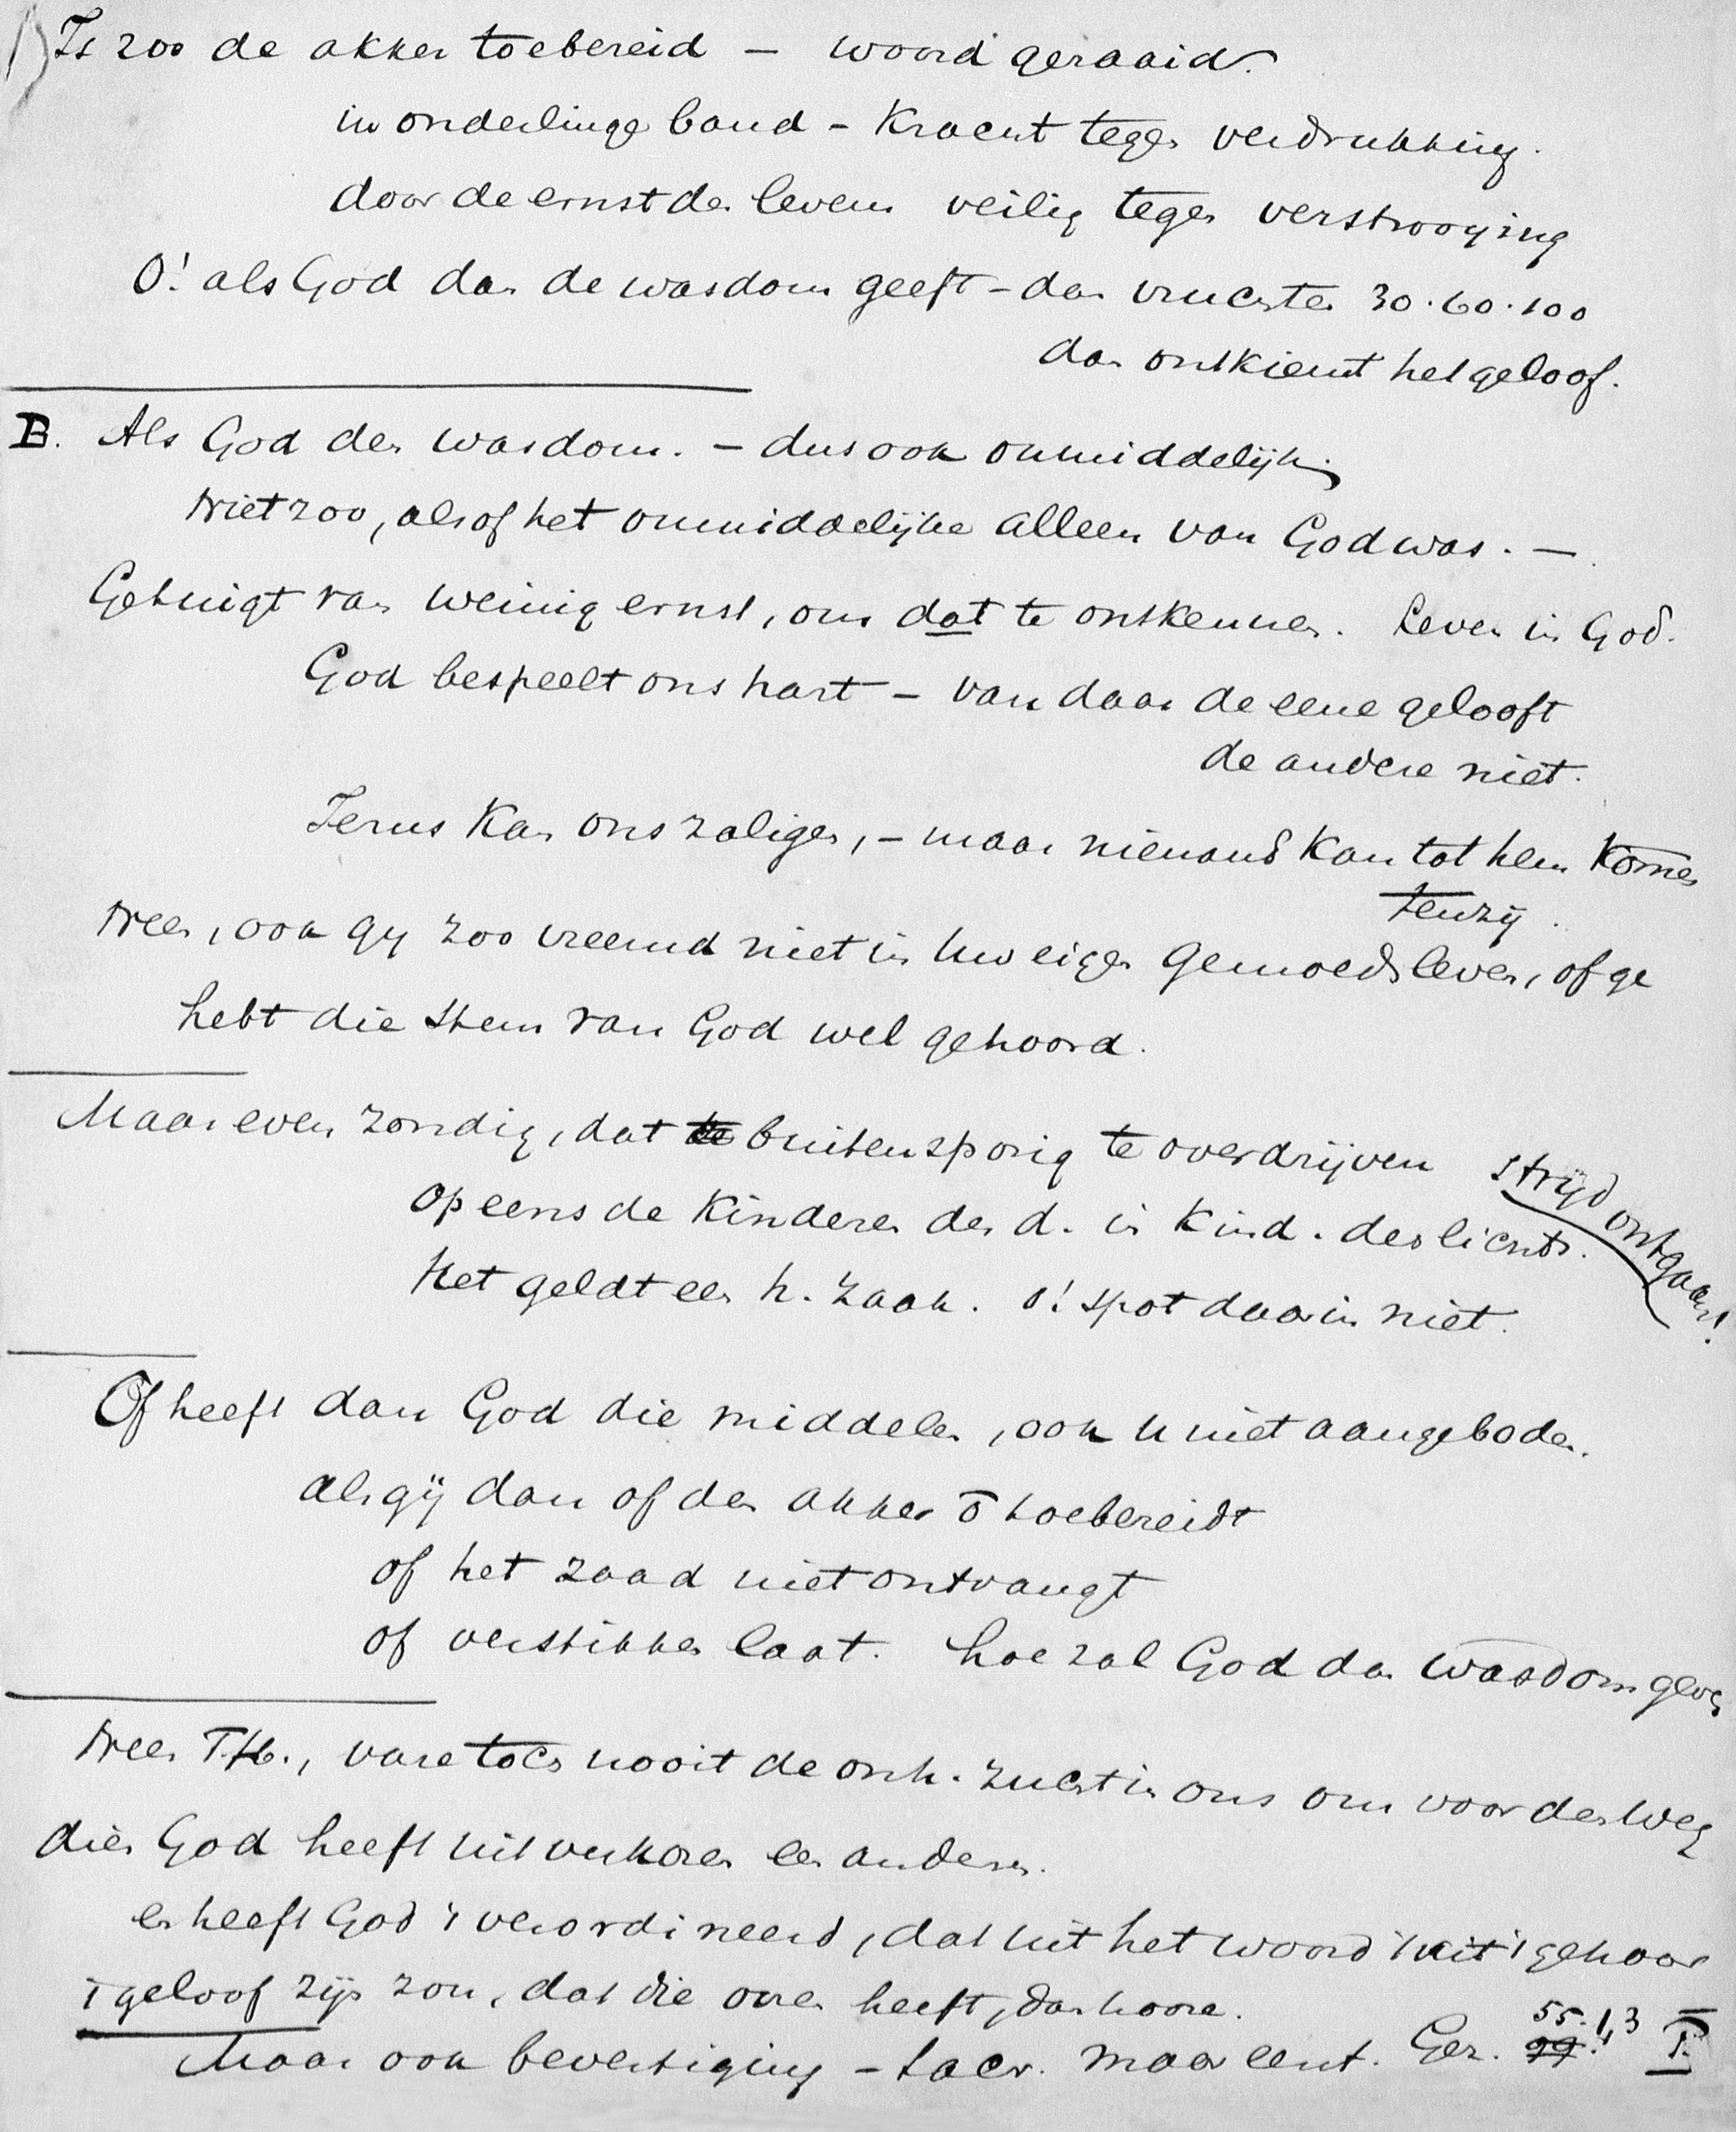 1) Is zoo de akker toebereid – woord gezaaid.
in onderlinge band – Kracht tegen verdrukking.
door de ernst des levens veilig tegen verstrooying
O! als God dan de wasdom geeft – dan vruchten 30.60.100
dan ontkiemt het geloof.
B. Als God den wasdom. – dus ook onmiddelijk.
Niet zoo, alsof het onmiddelijke alleen van God was. –
Getuigt van weinig ernst, om dat te ontkennen. Leven in God.
God bespeelt ons hart – van daar de eene gelooft
de andere niet.
Jezus kan ons zaligen, – maar niemand kan tot hem komen
tenzij.
Neen, ook gy zoo vreemd niet in Uw eigen gemoedsleven, of ge
hebt die stem van God wel gehoord.
Maar even zondig, dat te buitensporig te overdrijven strijd ontgaan!
op eens de kinderen der d. in kind. des lichts.
Het geldt een h. zaak. o! spot daarin niet.
Of heeft dan God die middelen, ook u niet aangeboden.
als gij dan of den akker ō toebereidt
of het zaad niet ontvangt
of verstikken laat. hoe zal God dan wasdom geven
Neen T.H., vare toch nooit de onh. zucht in ons om voor den weg
dien God heeft uitverkoren een anderen.
en heeft God 't verordineerd, dat uit het woord uit 't gehoor
't geloof zijn zou, dat die ooren heeft, dan hoore.
Maar ook bevestiging – sacr. maar eent. Gez. 99. 55.1,3 T.